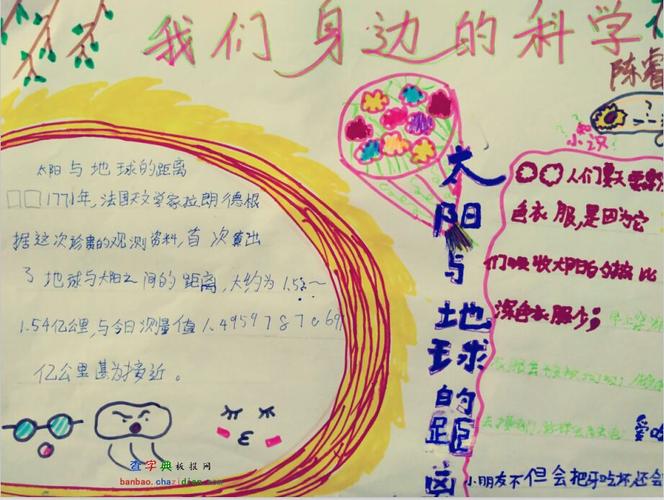 我们身边的科学
陈睿
太阳与地球的距离
1771年,法国天文学家拉朗德根
据这次珍贵的观测资料,首次算出
了地球与太阳之间的距离,大约为1.52~
1.54亿公里,与今日测量值1.4959787069
亿公里甚为接近。
太阳与地球的距离
小汉
人们夏天
色衣服,是因为它
们吸收太阳的热比
深色衣服少;
爱吃
小朋友不但会把牙吃坏还会
查字典板报网
banbao.chazidian.com